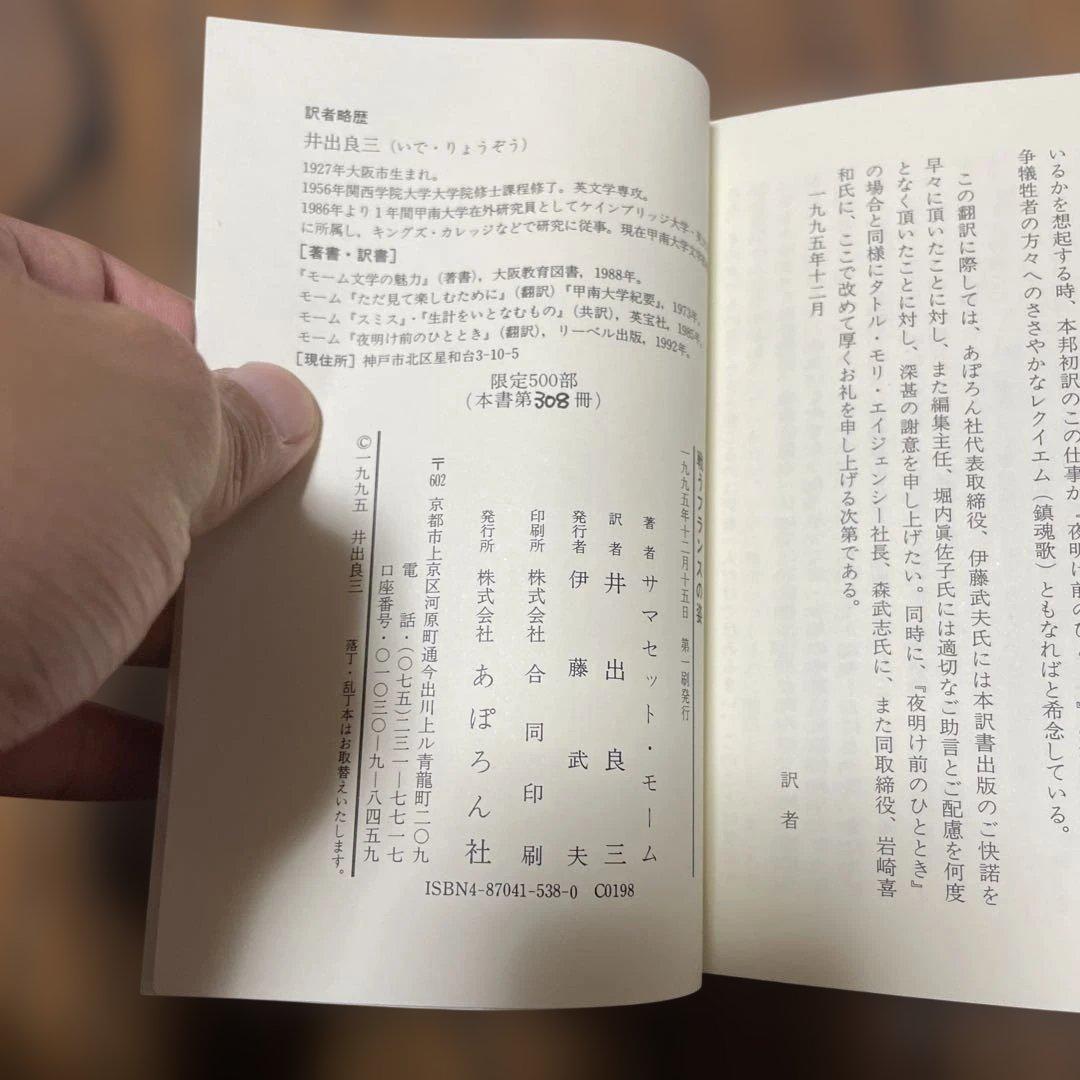 いるかを想起する時、本邦初訳のこの仕事が『夜明け前のひ
争犠牲者の方々へのささやかなレクイエム（鎮魂歌）ともなればと希念している。
この翻訳に際しては、あぽろん社代表取締役、伊藤武夫氏には本訳書出版のご快諾を
早々に頂いたことに対し、また編集主任、堀内眞佐子氏には適切なご助言とご配慮を何度
となく頂いたことに対し、深甚の謝意を申し上げたい。同時に、『夜明け前のひととき』
の場合と同様にタトル・モリ・エイジェンシー社長、森武志氏に、また同取締役、岩崎喜
和氏に、ここで改めて厚くお礼を申し上げる次第である。
一九九五年十二月
訳者
訳者略歴
井出良三（いで・りょうぞう）
1927年大阪市生まれ。
1956年関西学院大学大学院修士課程修了。英文学専攻。
1986年より1年間甲南大学在外研究員としてケインブリッジ大学・
に所属し、キングズ・カレッジなどで研究に従事。現在甲南大学文学
［著書・訳書］
『モーム文学の魅力』（著書），大阪教育図書，1988年。
モーム『ただ見て楽しむために』（翻訳）『甲南大学紀要』，1973年。
モーム『スミス』・『生計をいとなむもの』（共訳），英宝社，1985年。
モーム『夜明け前のひととき』（翻訳），リーベル出版，1992年。
［現住所］神戸市北区星和台3-10-5
限定500部
（本書第308冊）
戦うフランスの姿
一九九五年十二月十五日　第一刷発行
著者　サマセット・モーム
訳者　井出良三
発行者　伊藤武夫
印刷所　株式会社　合同印刷
発行所　株式会社　あぽろん社
〒602　京都市上京区河原町通今出川上ル青龍町二〇九
電話・（〇七五）二三一―七七一七
口座番号・〇一〇三〇―九―八四五九
©一九九五　井出良三
落丁・乱丁本はお取替えいたします。
ISBN4-87041-538-0　C0198